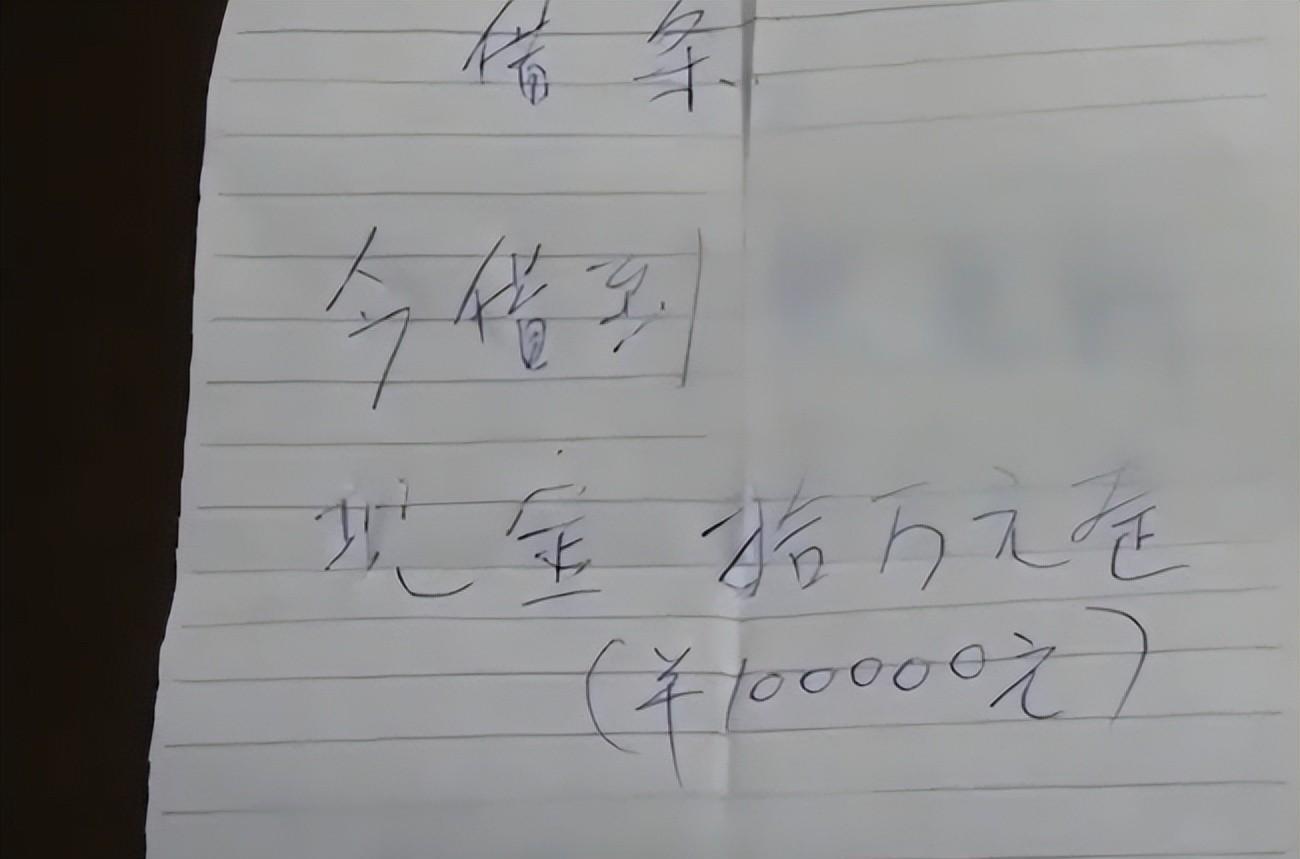 借条
今借到
现金 拾万元整
(¥100000元)